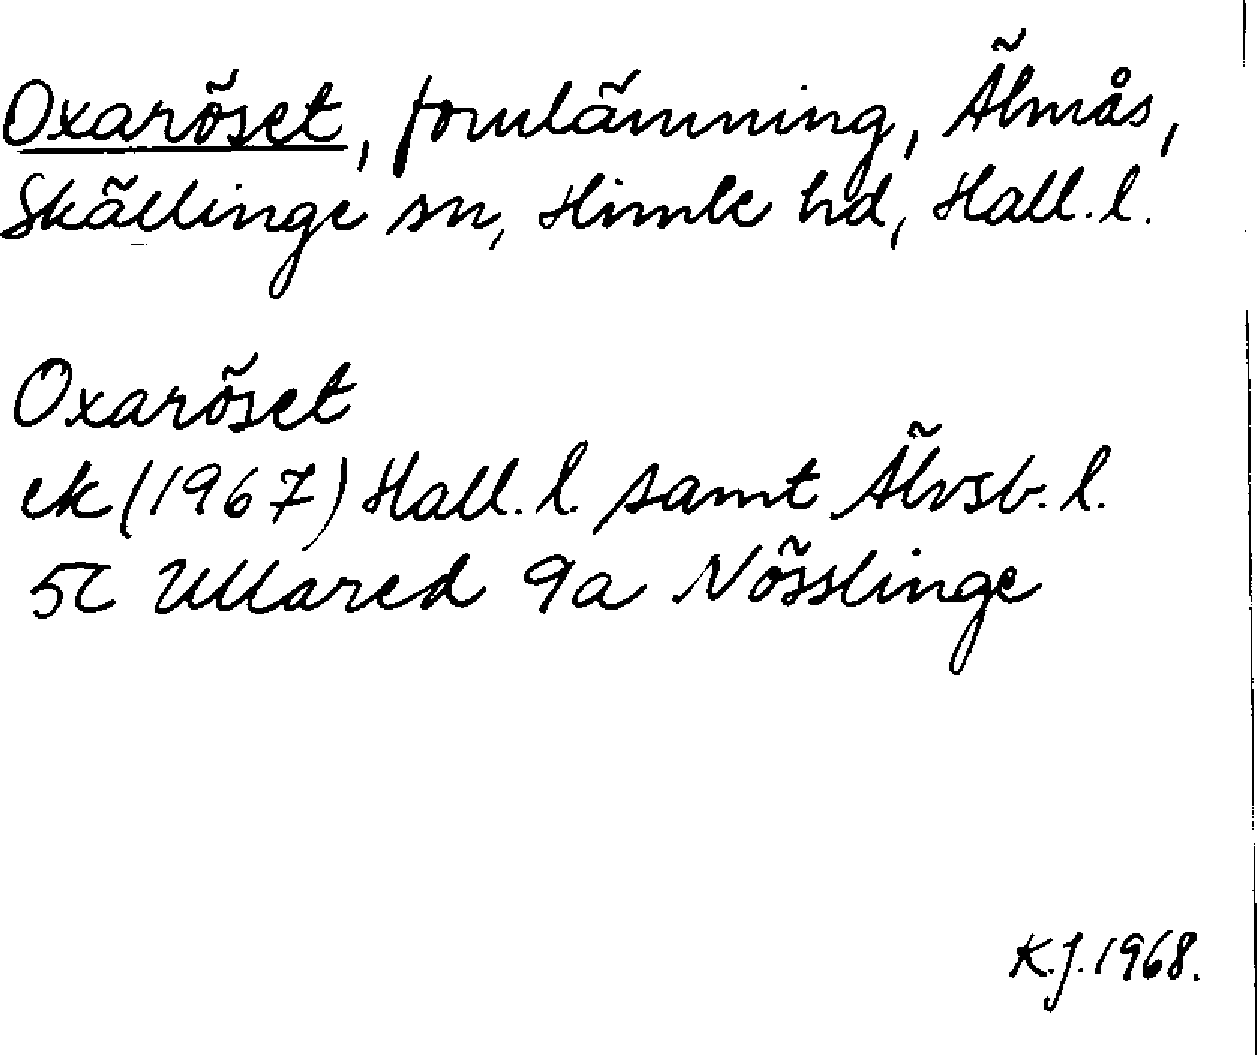 Oxaröset, fornlämning, Älmås,
Skällinge sn, Himle hd, Hall. l.
Oxaröset
ek (1967) Hall. l. samt Älvsb. l.
5C Ullared 9a Nösslinge
K.J. 1968.